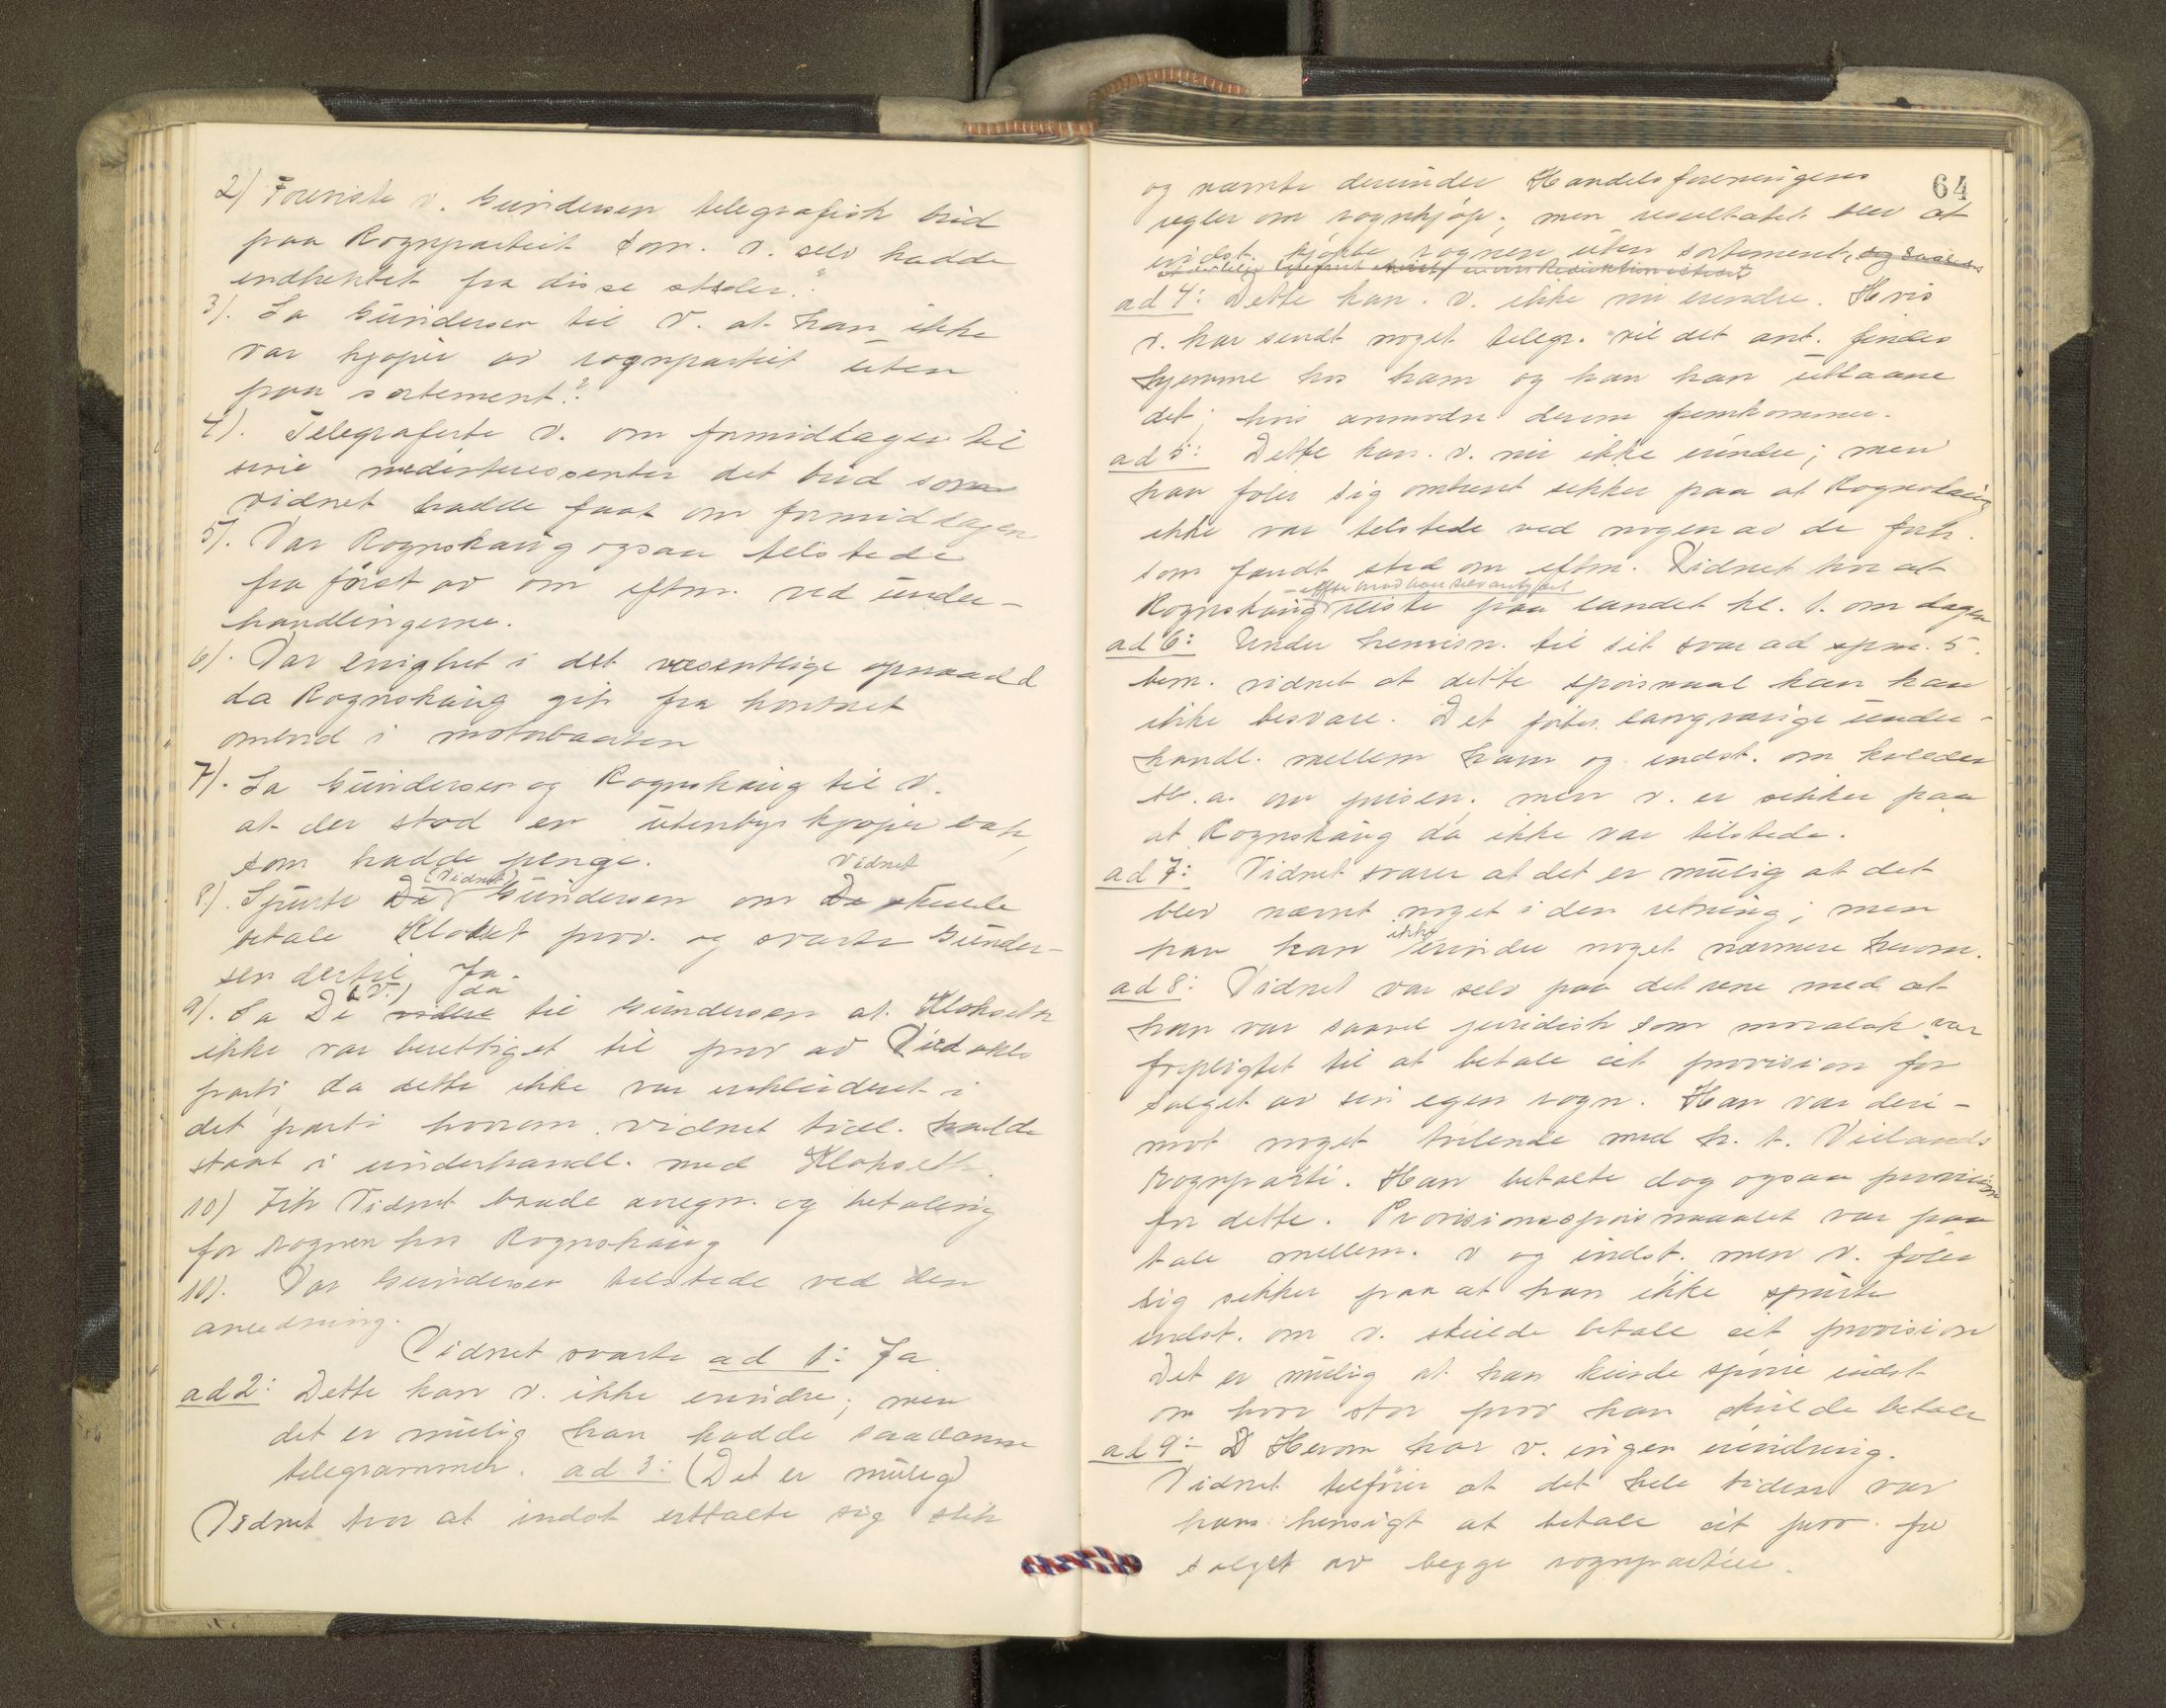 2) Foreviste v. Gundersen telegrafisk bud
paa Rognpartiet som v. selv hadde
indhentet fra disse steder."
3). Sa Gundersen til V. at han ikke
var kjøper av rognpartiet uten
paa sortement?
4). Telegraferte V. om formiddagen til
sine medinteressenter det bud som
vidnet hadde faat om formiddagen
5). Var Rognskaug ogsaa tilstede
fra først av om eftm. ved under-
handlingerne.
6). Var enighet i det væsentlige opnaadd
da Rognskaug gik fra kontoret
ombord i motorbaaten
7). Sa Gundersen og Rognskaug til V.
at der stod en utenbys kjøper bak,
som hadde penge.
8). Spurte De (Vidnet) Gundersen om De vidnet skulde
betale Klokset prov. og svarte Gunder-
sen dertil Ja.
9). Sa De (V.) videre da til Gundersen at Klokseth
ikke var berettiget til prov av
parti da dette ikke var inkluderet i
det parti hvorom vidnet tidl. hadde
staat i underhandl. med Klokseth.
10) Fik Vidnet baade avregn. og betaling
for rognen hos Rognskaug
10). Var Gundersen tilstede ved den
anledning.
Vidnet svarte ad 1: Ja
ad 2: Dette kan v. ikke erindre; men
det er mulig han hadde saadanne
telegrammer. ad 3: (Det er mulig)
Vidnet tror at indst uttalte sig slik
64
og nævnte derunder Handelsforeningens
regler om rognkjøp; men resultatet blev at
indst. kjøpte rognen uten sortement,
ad 4: Dette kan v. ikke nu erindre. Hvis
v. har sendt noget telegr. vil det ant. findes
hjemme hos ham og han kan utlaane
det, hvis anmodn derom fremkommer.
ad 5: Dette kan v. nu ikke erindre; men
han føler sig omtrent sikker paa at Rognskaug
ikke var tilstede ved nogen av de forh.
som fandt sted om eftm. Vidnet tror at
Rognskaug reiste paa landet kl. 1. om dagen
ad 6: Under henvisn. til sit svar ad spm. 5.
bem. vidnet at dette spørsmaal kan han
ikke besvare. Det førtes langvarige under-
handl. mellem ham og indst. om kvelden
bl. a. om prisen. men v. er sikker paa
at Rognskaug da ikke var tilstede.
ad 7: Vidnet svarer at det er mulig at det
blev nævnt noget i den retning; men
han kan ikke erindre noget nærmere herom.
ad 8: Vidnet var selv paa det rene med at
han var saavel juridisk som moralsk var
forpligtet til at betale eit provision for
salget av sin egen rogn. Han var der-
mot noget tvilende med h. t. Vielands
Rognparti. Han betalte dog ogsaa provision
for dette. Provisionsspørsmaalet var paa
tale mellem v og indst. men v. føler
sig sikker paa at han ikke spurte
indst. om v. skulde betale eit provision
Det er mulig at han kunde spørre indst
om hvor stor prov han skulde betale
ad 9: Herom har v. ingen erindring.
Vidnet tilføier at det hele tiden var
hans hensigt at betale eit prov. for
salget av begge rognpartier.